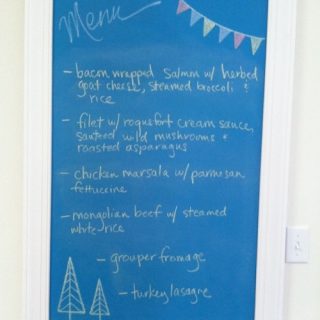 Menu
- bacon wrapped salmon w/ herbed
goat cheese, steamed broccoli &
rice
- filet w/ roquefort cream sauce,
sauteed wild mushrooms &
roasted asparagus
- chicken marsala w/ parmesan
fettuccine
- mongolian beef w/ steamed
white rice
- grouper fromage
- turkey lasagne